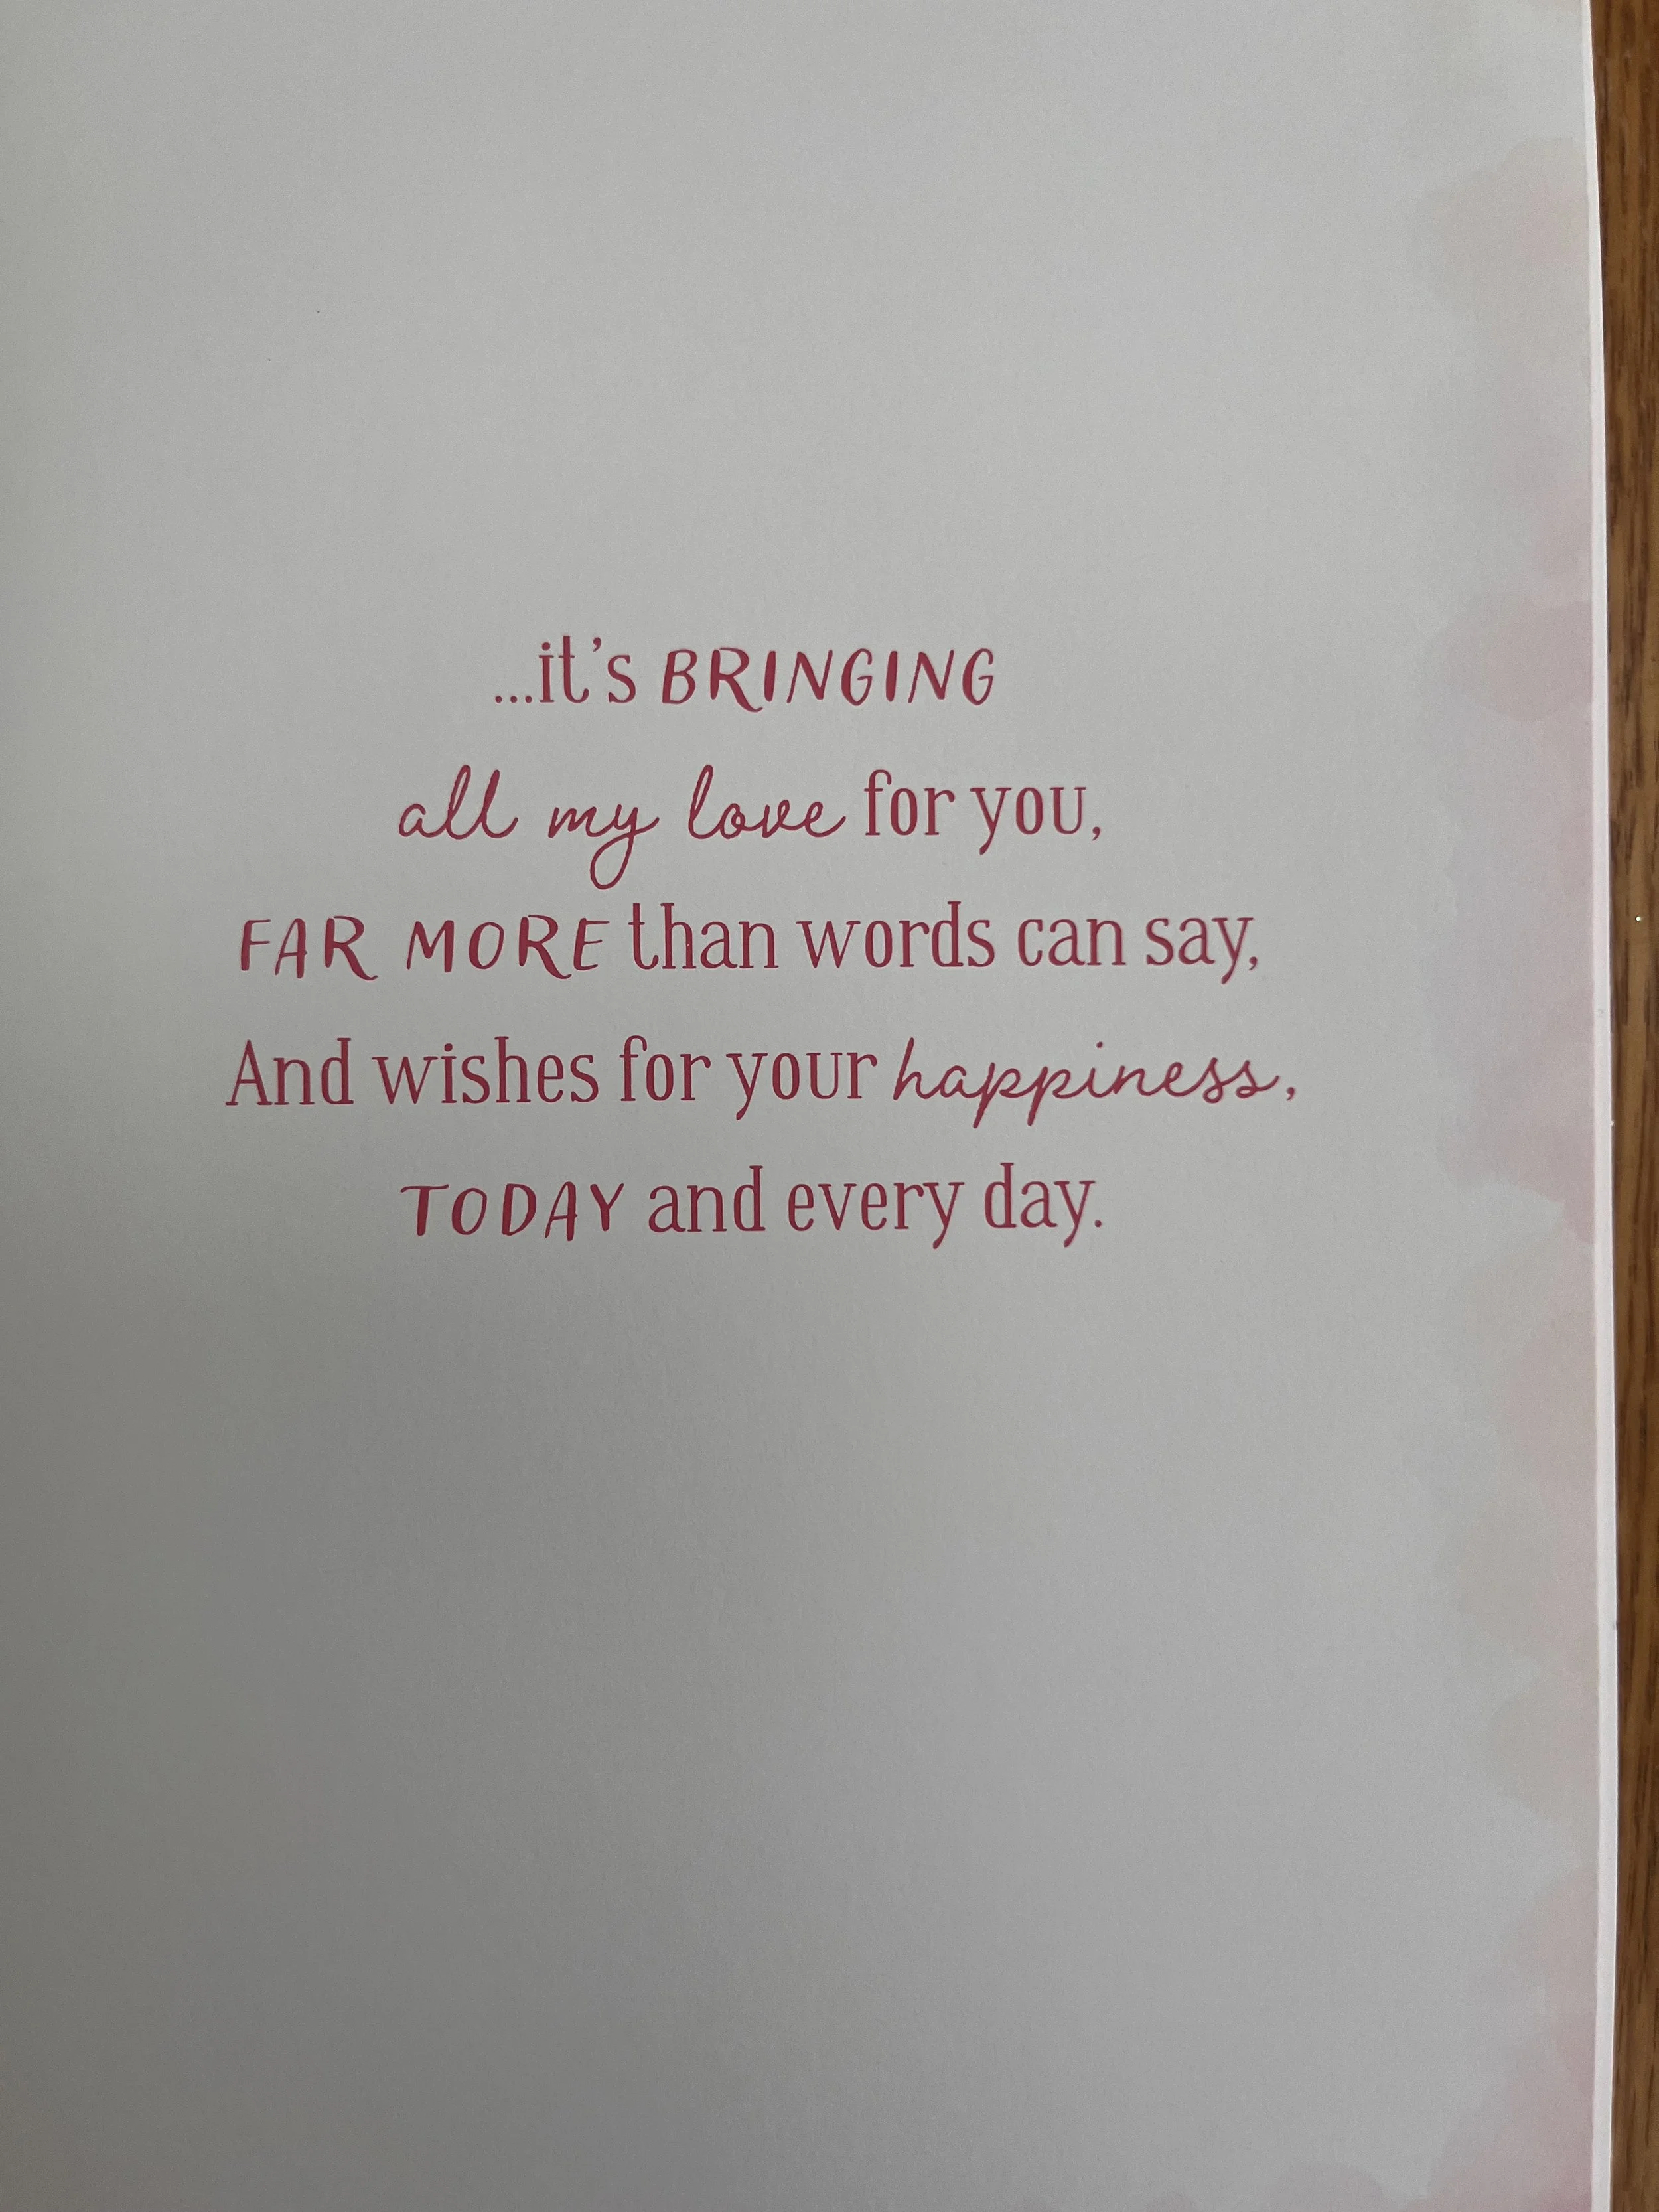 ...it's BRINGING
all my love for you,
FAR MORE than words can say,
And wishes for your happiness,
TODAY and every day.